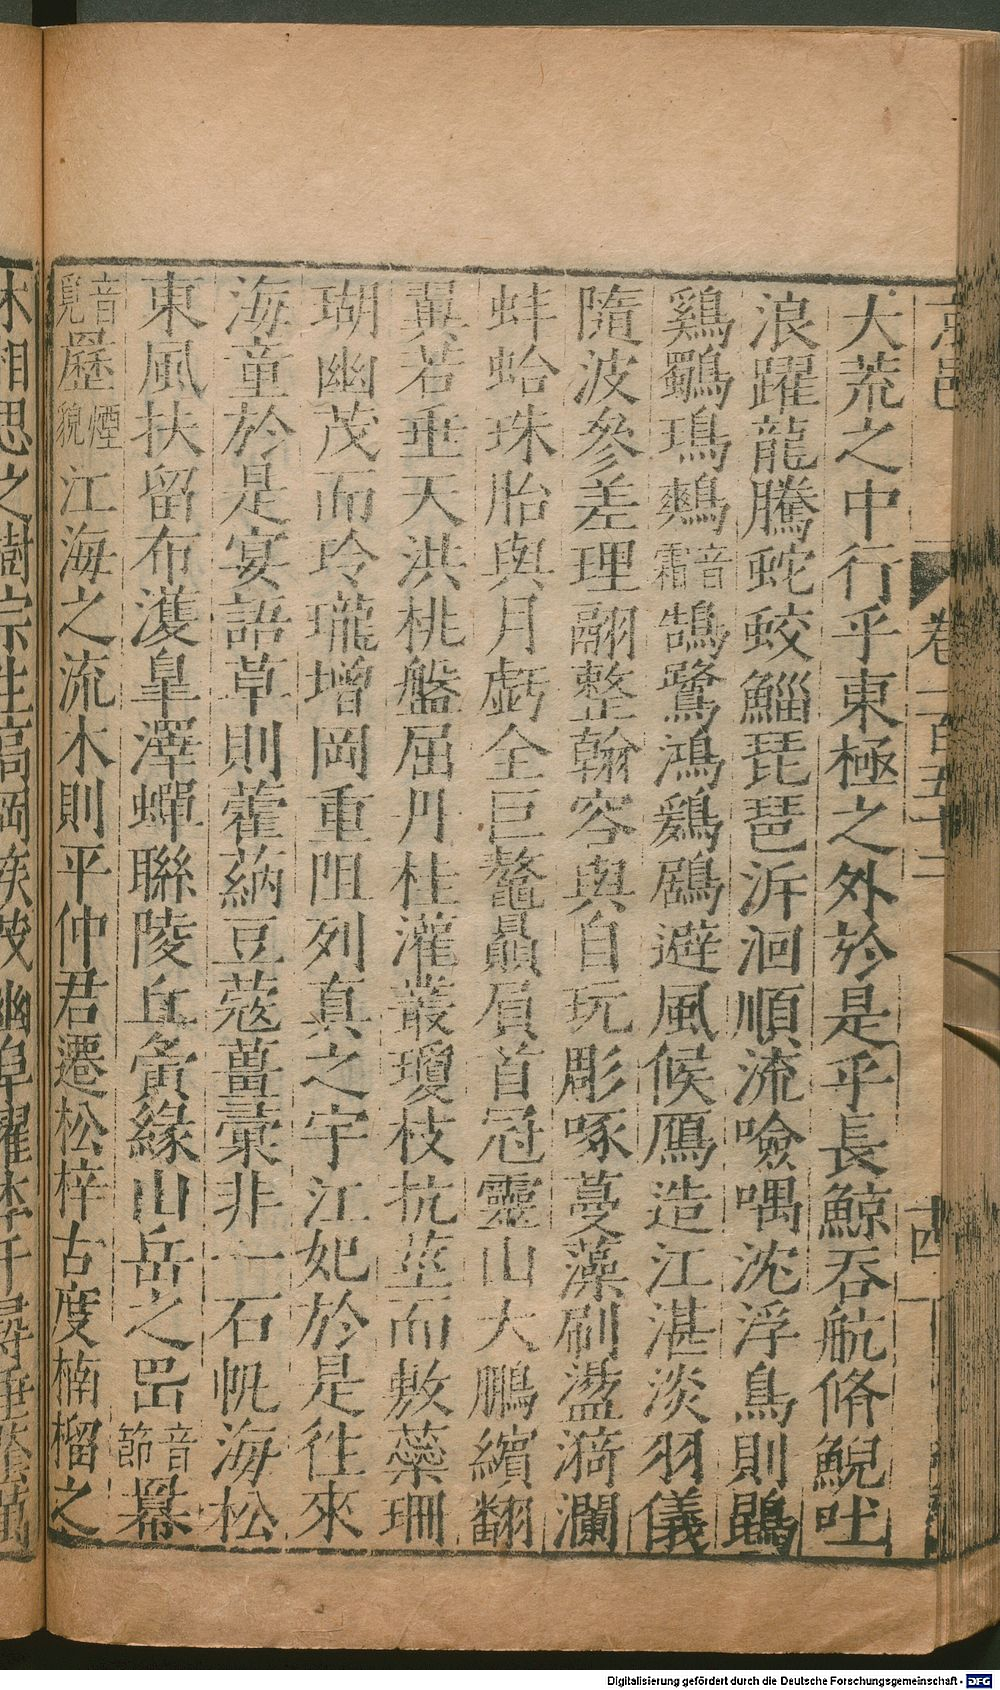 京邑 卷一百五十三 十四
大荒之中行乎東極之外於是乎長鯨吞航脩鯢吐
浪躍龍騰蛇蛟鯔琵琶泝洄順流噞喁沈浮鳥則鵾
鷄鸀瑦鷞音霜鵠鷺鴻鶢鶋避風候鴈造江湛淡羽儀
隨波參差理翮整翰容與自玩彫啄蔓藻刷盪漪瀾
蚌蛤珠胎與月虧全巨鼇贔屓首冠靈山大鵬繽翻
翼若垂天洪桃盤屈丹桂灌叢瓊枝抗莖而敷蘂珊
瑚幽茂而玲瓏增岡重阻列真之宇江妃於是徃來
海童於是宴語草則藿蒳豆蔻薑彙非一石帆海松
東風扶留布濩皐澤蟬聯陵丘夤緣山岳之岊音節冪
音覓歷煙貌江海之流木則平仲君遷松梓古度楠榴之
木相思之樹宗生高岡族茂幽阜擢本千尋垂蔭萬
Digitalisierung gefördert durch die Deutsche Forschungsgemeinschaft - DFG